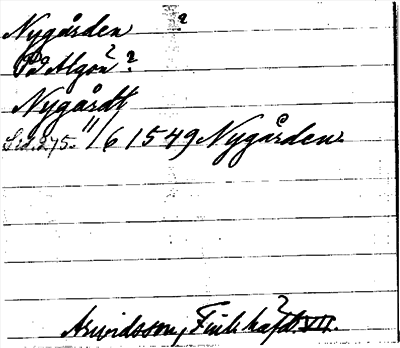 Nygården ?
På Algön ?
Nygårdt
Sid. 275. 11/6 1549 Nygården
Arwidsson, Finl. häfd. VII.